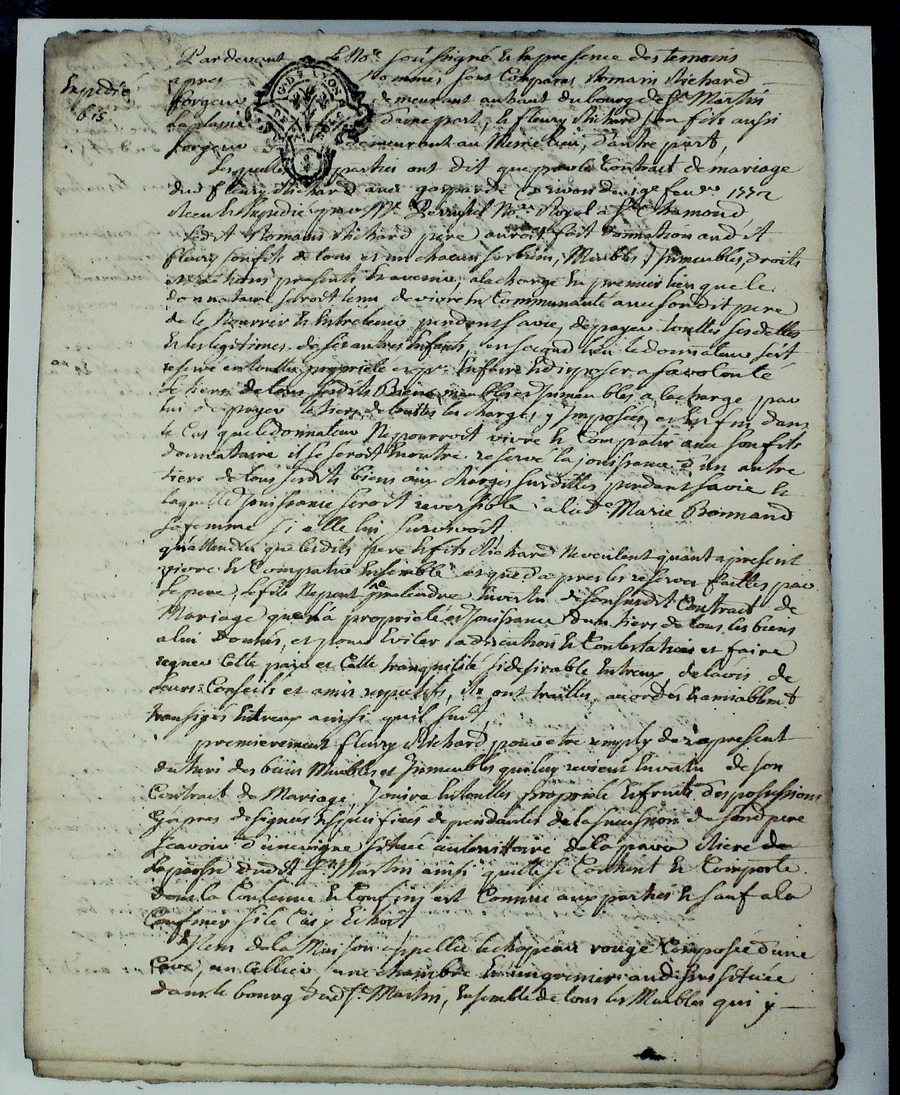 Pardevant Le No.re soussigné & en presence des temoins
Expedié
bis
apres nommés, sont Comparus Romain Richard
forgeur demeurant au haut du bourg de St Martin
La plaine d'une part, & fleury Richard son fils aussi
forgeur demeurant au meme lieu, d'autre part,
G. DE LYON
Lesquelles parties ont dit que par le Contract de mariage
dud. fleury Richard avec du 19e fevrier 1772
Receu & Expedié par Me No.re Royal a St Chamond
Ledit Romain Richard pere auroit fait donnation audit
fleury son fils de tous et un chacun ses biens, Meubles, Immeubles, droits
et actions presents & avenir, a la charge en premier lieu que le
donnataire seroit tenu de vivre en Communauté avec sondit pere
de le Nourrir & Entretenir pendant sa vie, de payer touttes ses dettes
& les legitimes de ses autres Enfants, en second lieu le donnateur s'est
reservé en toutte propriété pour en jouir & disposer a sa volonté
le tiers de tous sesdits Biens meubles et Immeubles a la charge par
lui de payer le tiers de touttes les charges y Imposées, et Enfin dans
le Cas que le donnateur Ne pourroit vivre & Compatir avec son fils
donnataire il se seroit En outre reservé la jouissance d'un autre
tiers de tous sesdits biens aux charges susdittes pendant sa vie &
laquelle Jouissance seroit reversible a lade Marie Bonnand
sa femme si elle lui survivoit
qu'attendu que lesdits pere & fils Richard ne veulent quant a present
vivre & Compatir Ensemble et que d'apres les reserves faittes par
le pere, le fils Ne peut pretendre en vertu de son susdit Contract de
Mariage que la propriété et Jouissance d'un tiers de tous les biens
a lui donnés, et pour Eviter a discution & Contestations et faire
regner Cette paix et Cette tranquilité si desirable Entreux de lavis de
leurs Conseils et amis respectifs, ils ont traittés, accordés & amiablement
transigés Entreux ainsi quil suit,
premierement fleury Richard, pour etre remply des a present
du tiers des biens Meubles et Immeubles qui luy revient En vertu de son
Contract de Mariage, Jouira En toutte propriété & fruits des possessions
Cy apres designées & Specifiées dependantes de la succession de sond. pere
scavoir d'une vigne située au territoire de la
la paroisse dudit St Martin ainsi quelle se Contient & Comporte
dont la Contenue & Confins est Connue aux parties & sauf a la
Confiner si le Cas y Echoit
Item de la Maison appellée le chapeau rouge Composée d'une
Cave, un cellier une chambre & un grenier au dessus située
dans le bourg dud. St Martin, Ensemble de tous les Meubles qui y